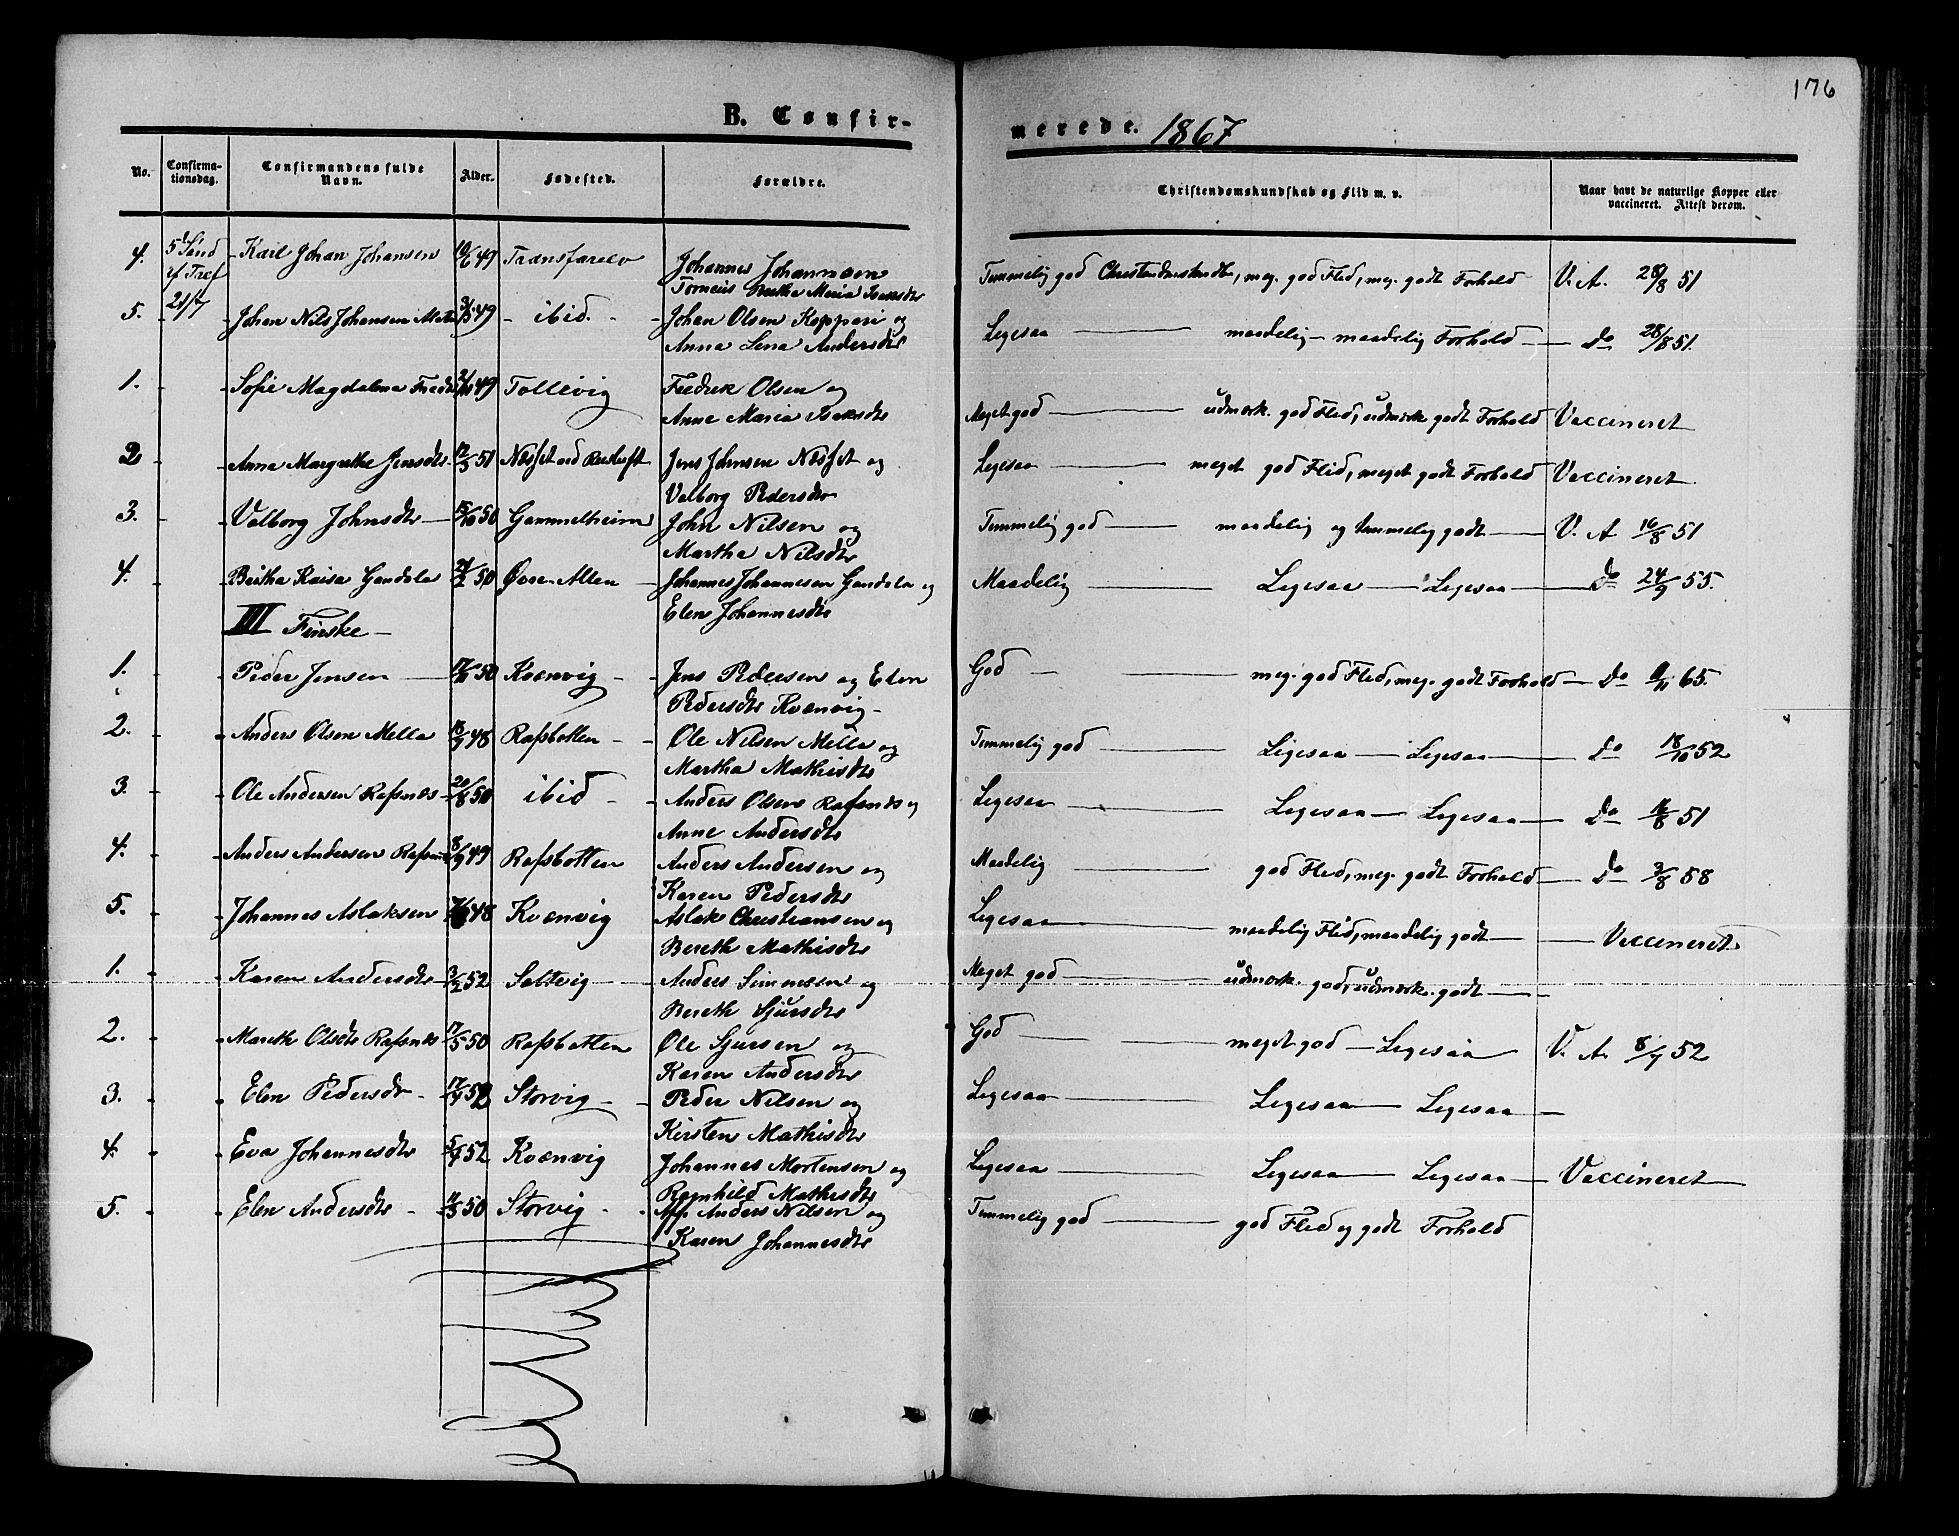 176
B. Confirmerede. 1867
No. Confirmationsdag. Confirmandens fulde Navn. Alder. Fødested. Forældre. Christendomskundskab og Flid m. v. Naar havt de naturlige Kopper eller vaccineret. Attest derom.
4. 5' Sønd Karl Johan Johansen 49 Johannes Johannesen Temmelig god meg. god Flid, meg. godt Forhold V. A. 28/8 51
21/7 Maria
5. Johan Nils Johansen 49 ibid. Johan Olsen og Ligesaa maadelig maadelig Forhold Do 28/8 51.
Anna Lena Andersdtr
1. Sofie Magdalena 49 Tollevig Fredrik Olsen og
Anne Maria Meget god udmærk. god Flid, udmærk godt Forhold Vaccineret
2 Anna Margrethe Jensdtr 51 Jens Johnsen og Ligesaa meget god Flid, meget godt Forhold Vaccineret
Valborg Pedersdtr
3. Valborg Johnsdtr 50 Gammelheim John Nilsen og Temmelig god maadelig og temmelig godt V. A 16/8 51
Martha Nilsdtr
4. Beritha Kaisa 50 Øvre Alten Johannes Johannesen og Maadelig Ligesaa Ligesaa Do 24/9 55.
Elen Johannesdtr
III Finske
1. Peder Jensen 50 Kvænvig Jens Pedersen og Elen God meg. god Flid, meg. godt Forhold Do 65.
Pedersdtr Kvænvig
2. Anders Olsen Mella 48 Rafsbotten Ole Nilsen Mella og Temmelig god Ligesaa Ligesaa Do 18/10 52
Martha Mathisdtr
3. Ole Andersen Rafsnæs 20/8 50 ibid Anders Olsen Rafsnæs og Ligesaa Ligesaa Ligesaa Do 16/8 51
Anne Andersdtr
4. Anders Andersen 8/9 49 Rafsbotten Anders Andersen og Maadelig god Flid, meg. godt Forhold Do 3/8 58
Karen Pedersdtr
5. Johannes Aslaksen 48 Kvænvig Aslak Christiansen og Ligesaa maadelig Flid, maadelig godt Vaccineret.
Bereth Mathisdtr
1. Karen Andersdtr 3/2 52 Saltvig Anders Simonsen og Meget god udmærk. god, udmærk. godt
Bereth Sjursdtr
2. Mareth Olsdtr Rafsnæs 17/5 50 Rafsbotten Ole Sjursen og God meget god Ligesaa V. A. 8/7 52
Karen Andersdtr
3. Elen Pedersdtr 52 Storvig Peder Nilsen og Ligesaa Ligesaa Ligesaa
Kirsten Mathisdtr
4. Eva Johannesdtr 52 Kvænvig Johannes Mortensen og Ligesaa Ligesaa Ligesaa Vaccineret
Ragnhild Mathisdtr
5. Elen Andersdtr 50 Storvig Anders Nilsen og Temmelig god god Flid og godt Forhold
Karen Johannesdtr